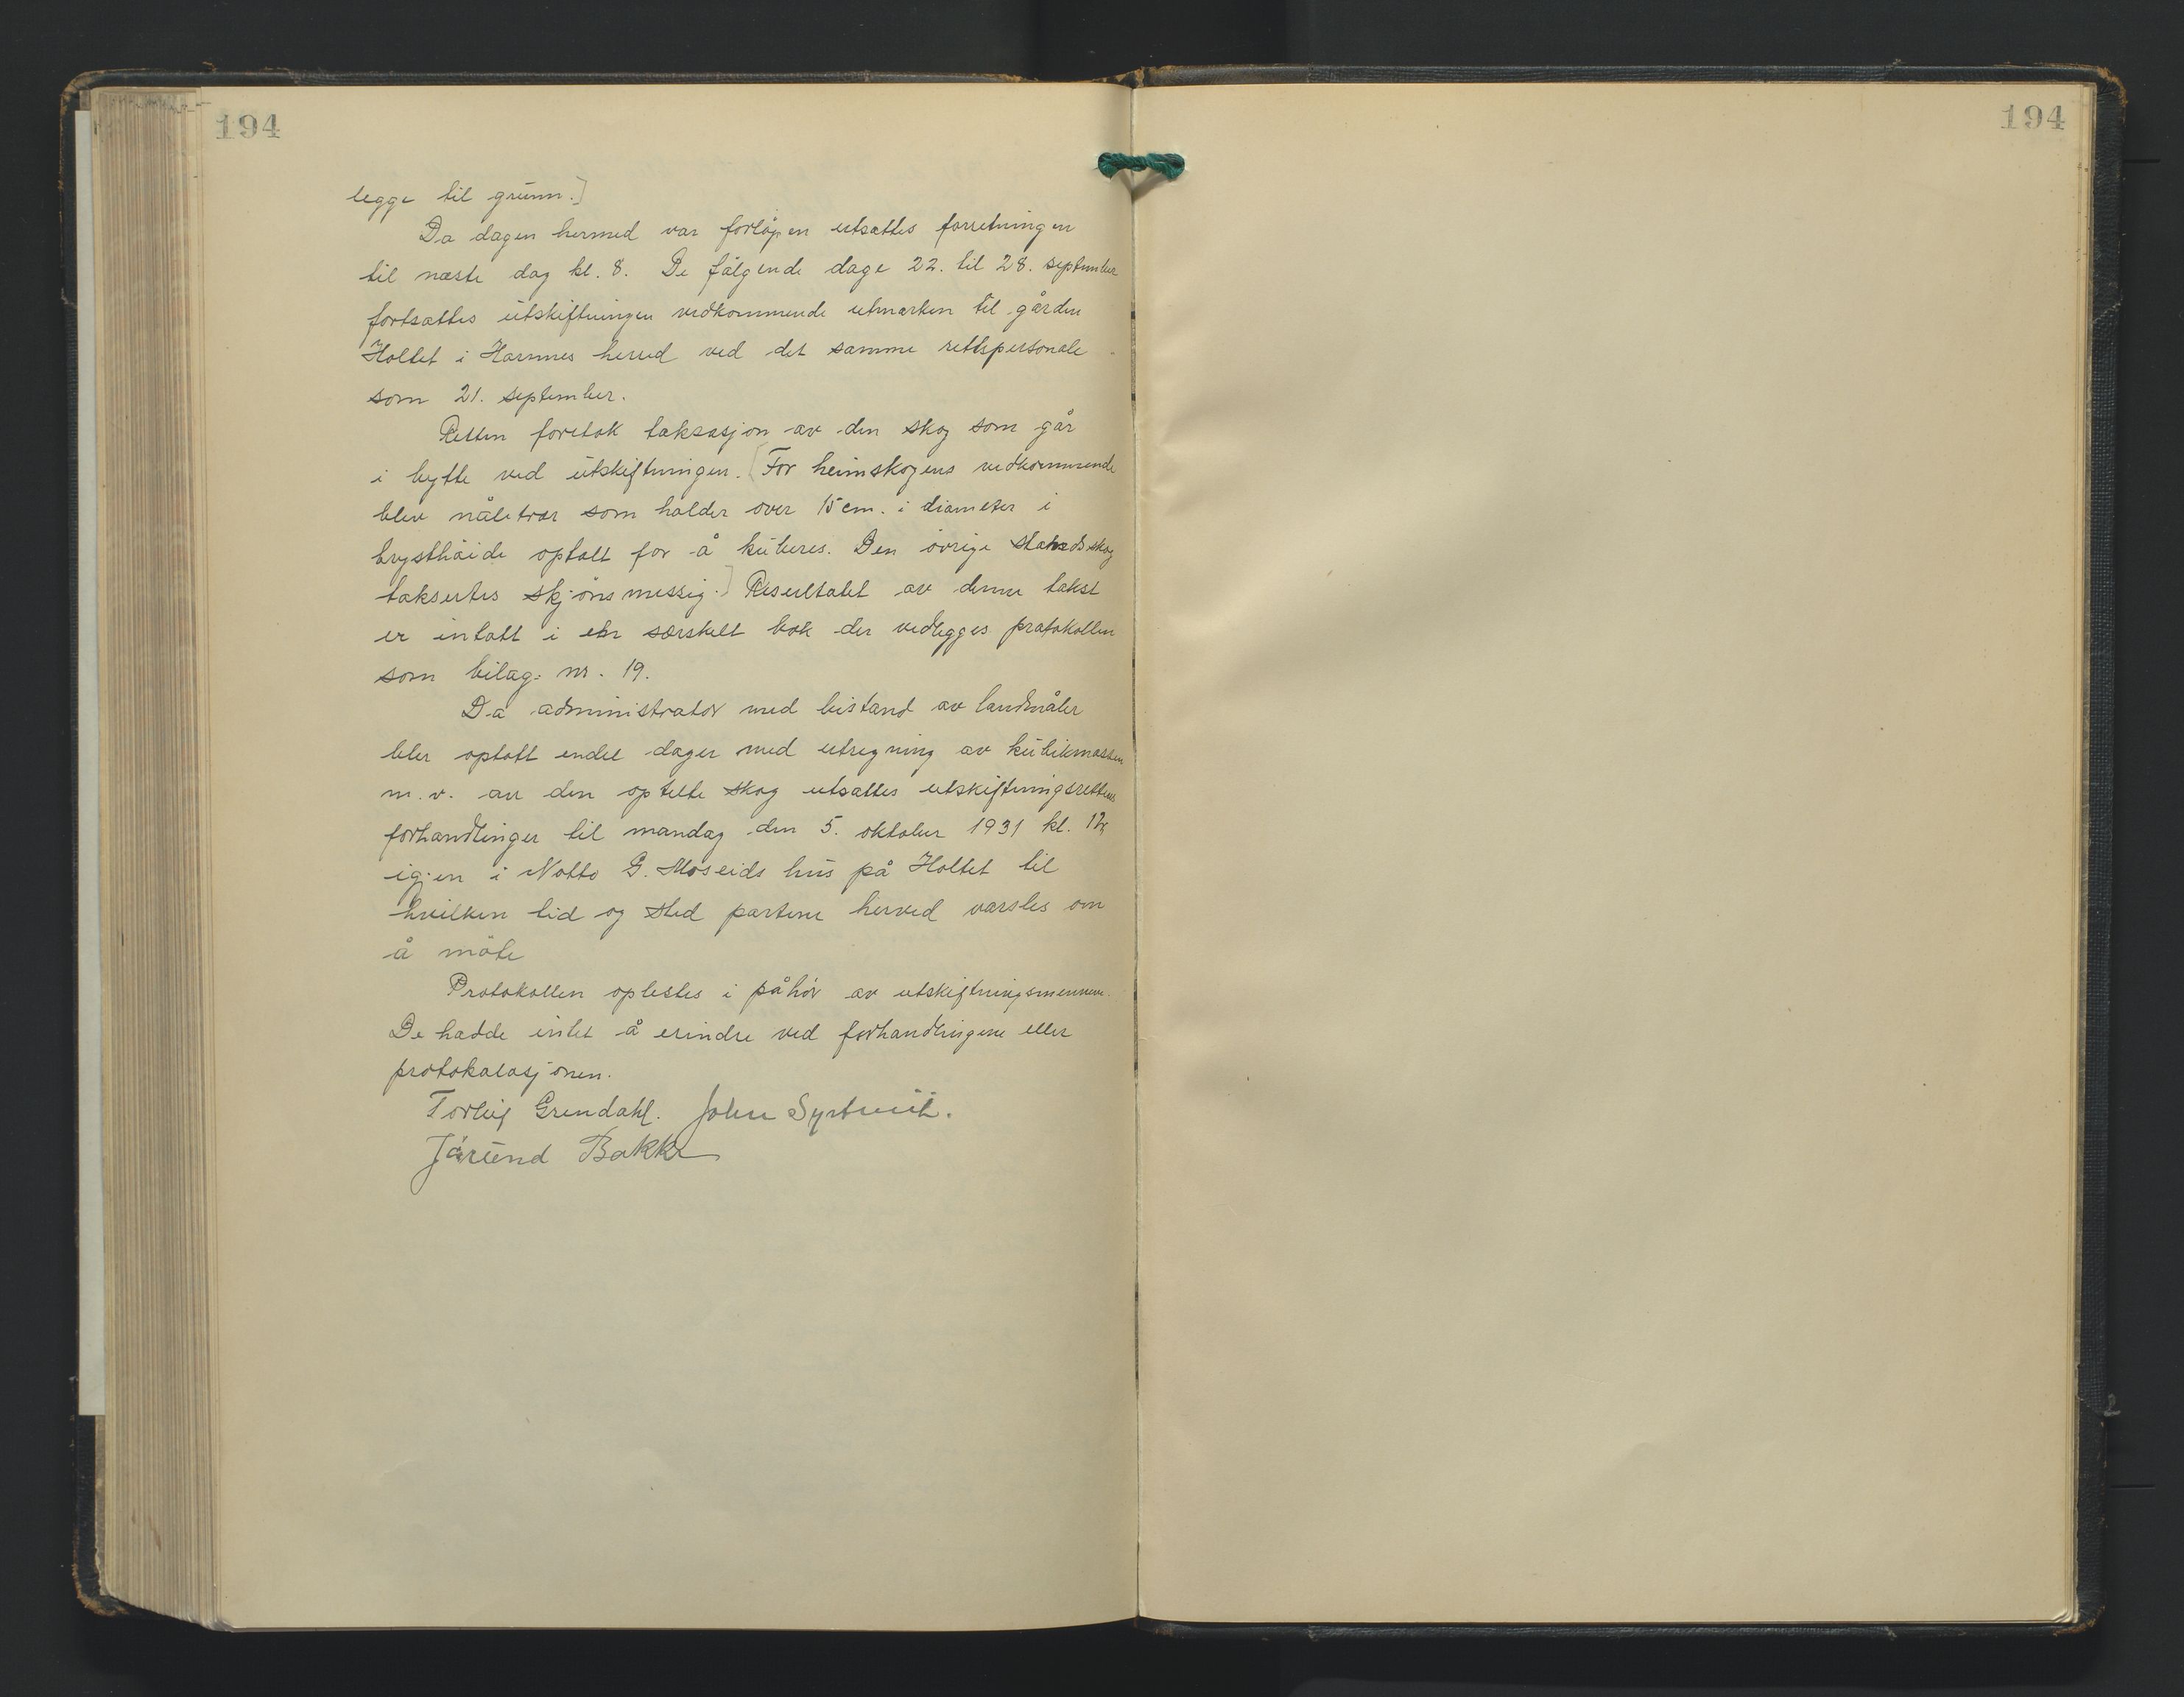 194
legge til grunn.]
Da dagen hermed var forløpen utsattes forretningen
til næste dag kl. 8. De følgende dage 22. til 28. september
fortsattes utskiftningen vedkommende utmarken til gården
Holtet i Hornnes herred ved det samme rettspersonale
som 21. september.
Retten foretok taksasjon av den skog som går
i bytte ved utskiftningen. [For heimskogens vedkommende
blev nåletrær som holder over 15 cm. i diameter i
brysthøide optalt for å kuberes. Den øvrige skog
taksertes skjønsmessig.] Resultatet av denne takst
er intatt i en særskilt bok der vedlegges protokollen
som bilag nr. 19.
Da administrator med bistand av landmåler
blir optatt endel dager med utregning av kubikmassen
m.v. av den optelte skog utsattes utskiftningsrettens
forhandlinger til mandag den 5. oktober 1931 kl. 12
igjen i Notto G. Moseids hus på Holtet til
hvilken tid og sted partene herved varsles om
å møte
Protokollen oplestes i påhør av utskiftningsmennene.
De hadde intet å erindre ved forhandlingene eller
protokolasjonen.
Torleif Grendahl. John
Jørund Bakke
194